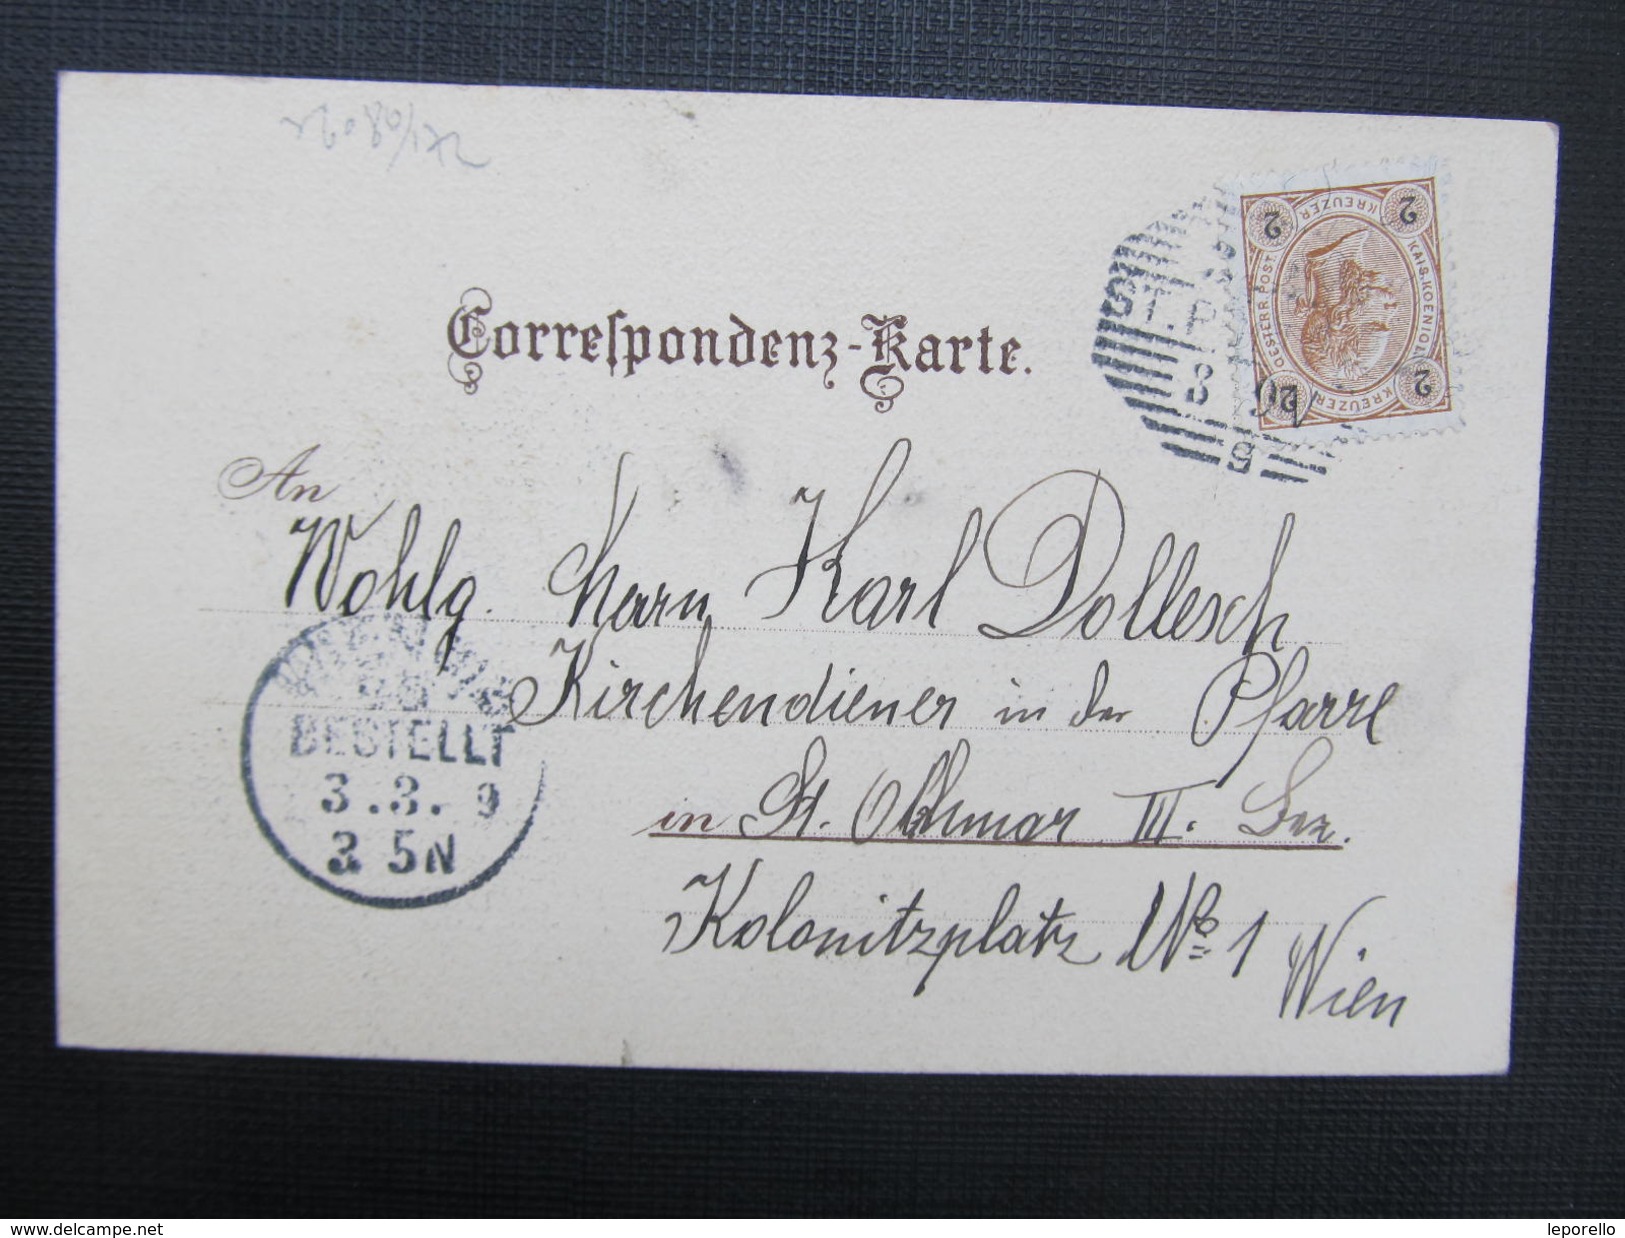 Correspondenz-Karte.
An
Wohlg. Herrn Karl Dollesch
Kirchendiener in der Pfarre
in St. Othmar III. Bez.
Kolonitzplatz No 1
Wien
BESTELLT
3.3.9
3 5N
ST.P
5
2 KREUZER 2
OESTERR. POST. KAIS. KOENIGL.
2 KREUZER 2
© www.delcampe.net
leporello